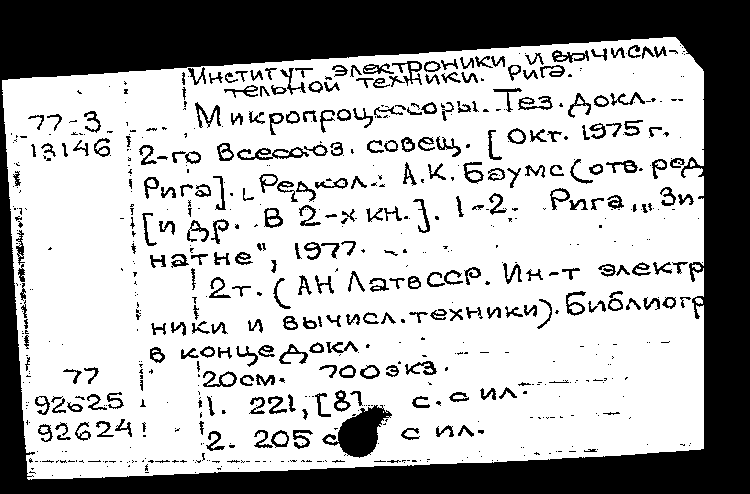 Институт электроники и вычисли-
тельной техники. Рига.
77-3 Микропроцессоры. Тез. докл.
13146 2-го Всесоюз. совещ. [Окт. 1975 г.
Рига]. Редкол.: А.К. Баумс (отв. ред
[и др. В 2-х кн.]. 1-2. Рига, „Зи-
натне", 1977.
2т. (АН ЛатвССР. Ин-т электр
ники и вычисл. техники). Библиогр
в конце докл.
77 20см. 700 экз.
92625 1. 221, [8] с. с ил.
92624 2. 205 с с ил.